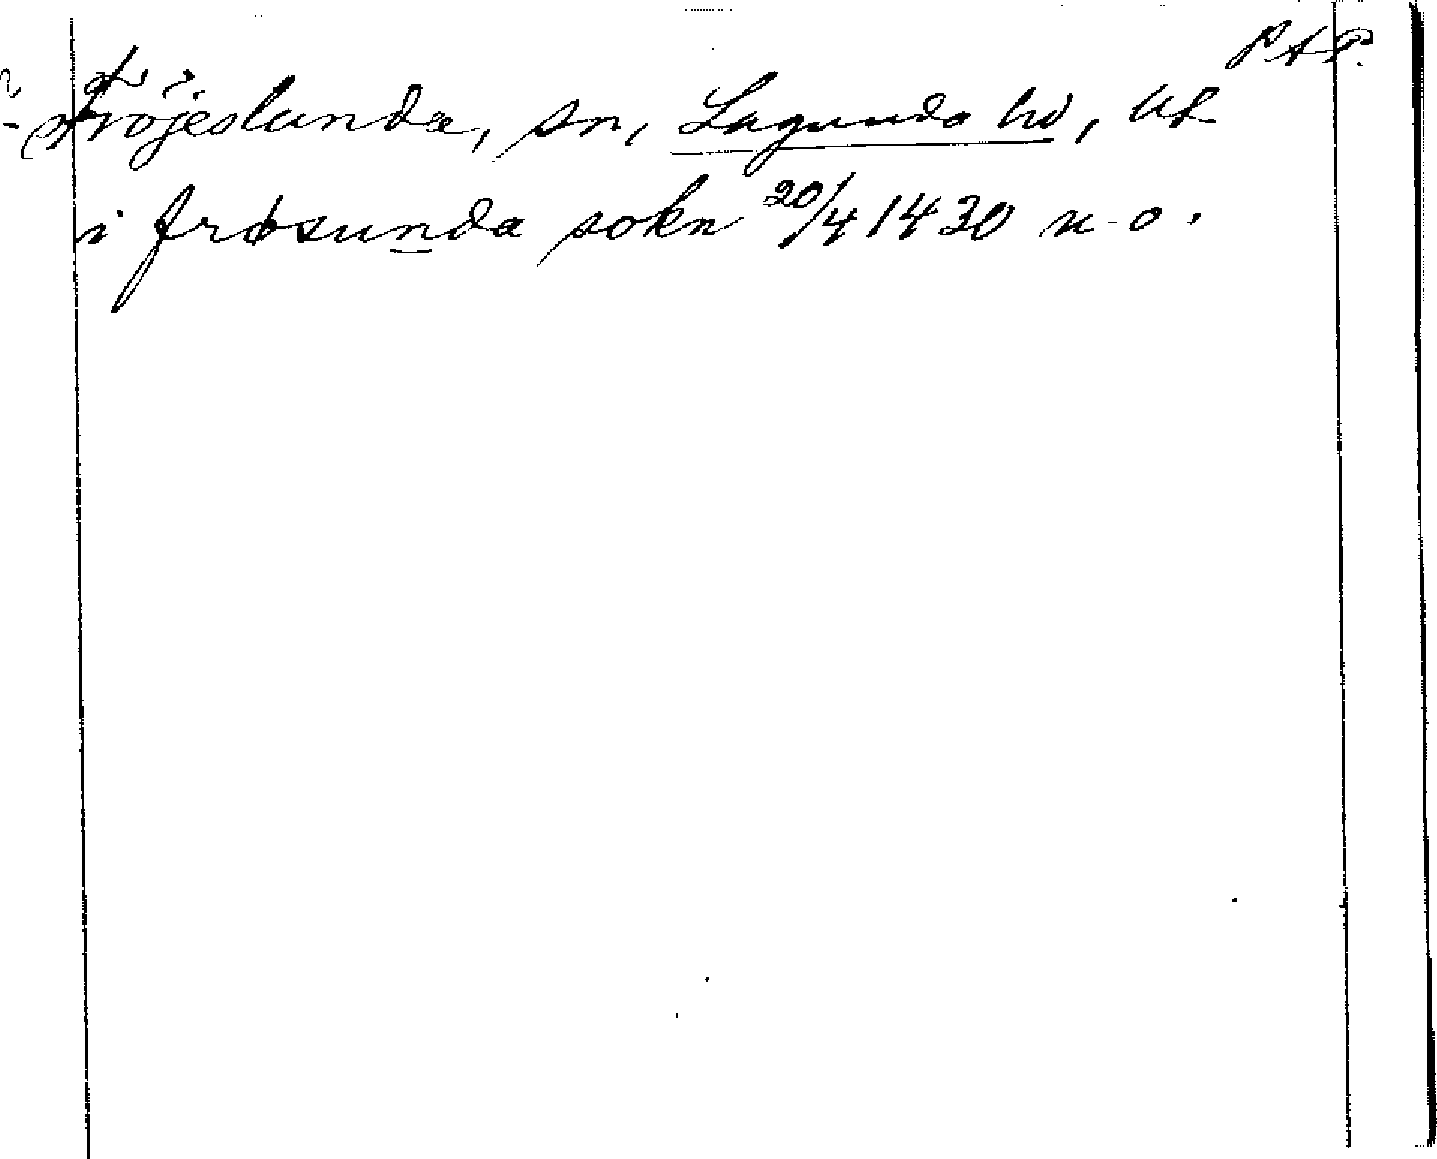 P A P.
Fröjeslunda, sn, Lagunda hd, Upl.
i frøsunda sokn 20/4 1430 u. o.